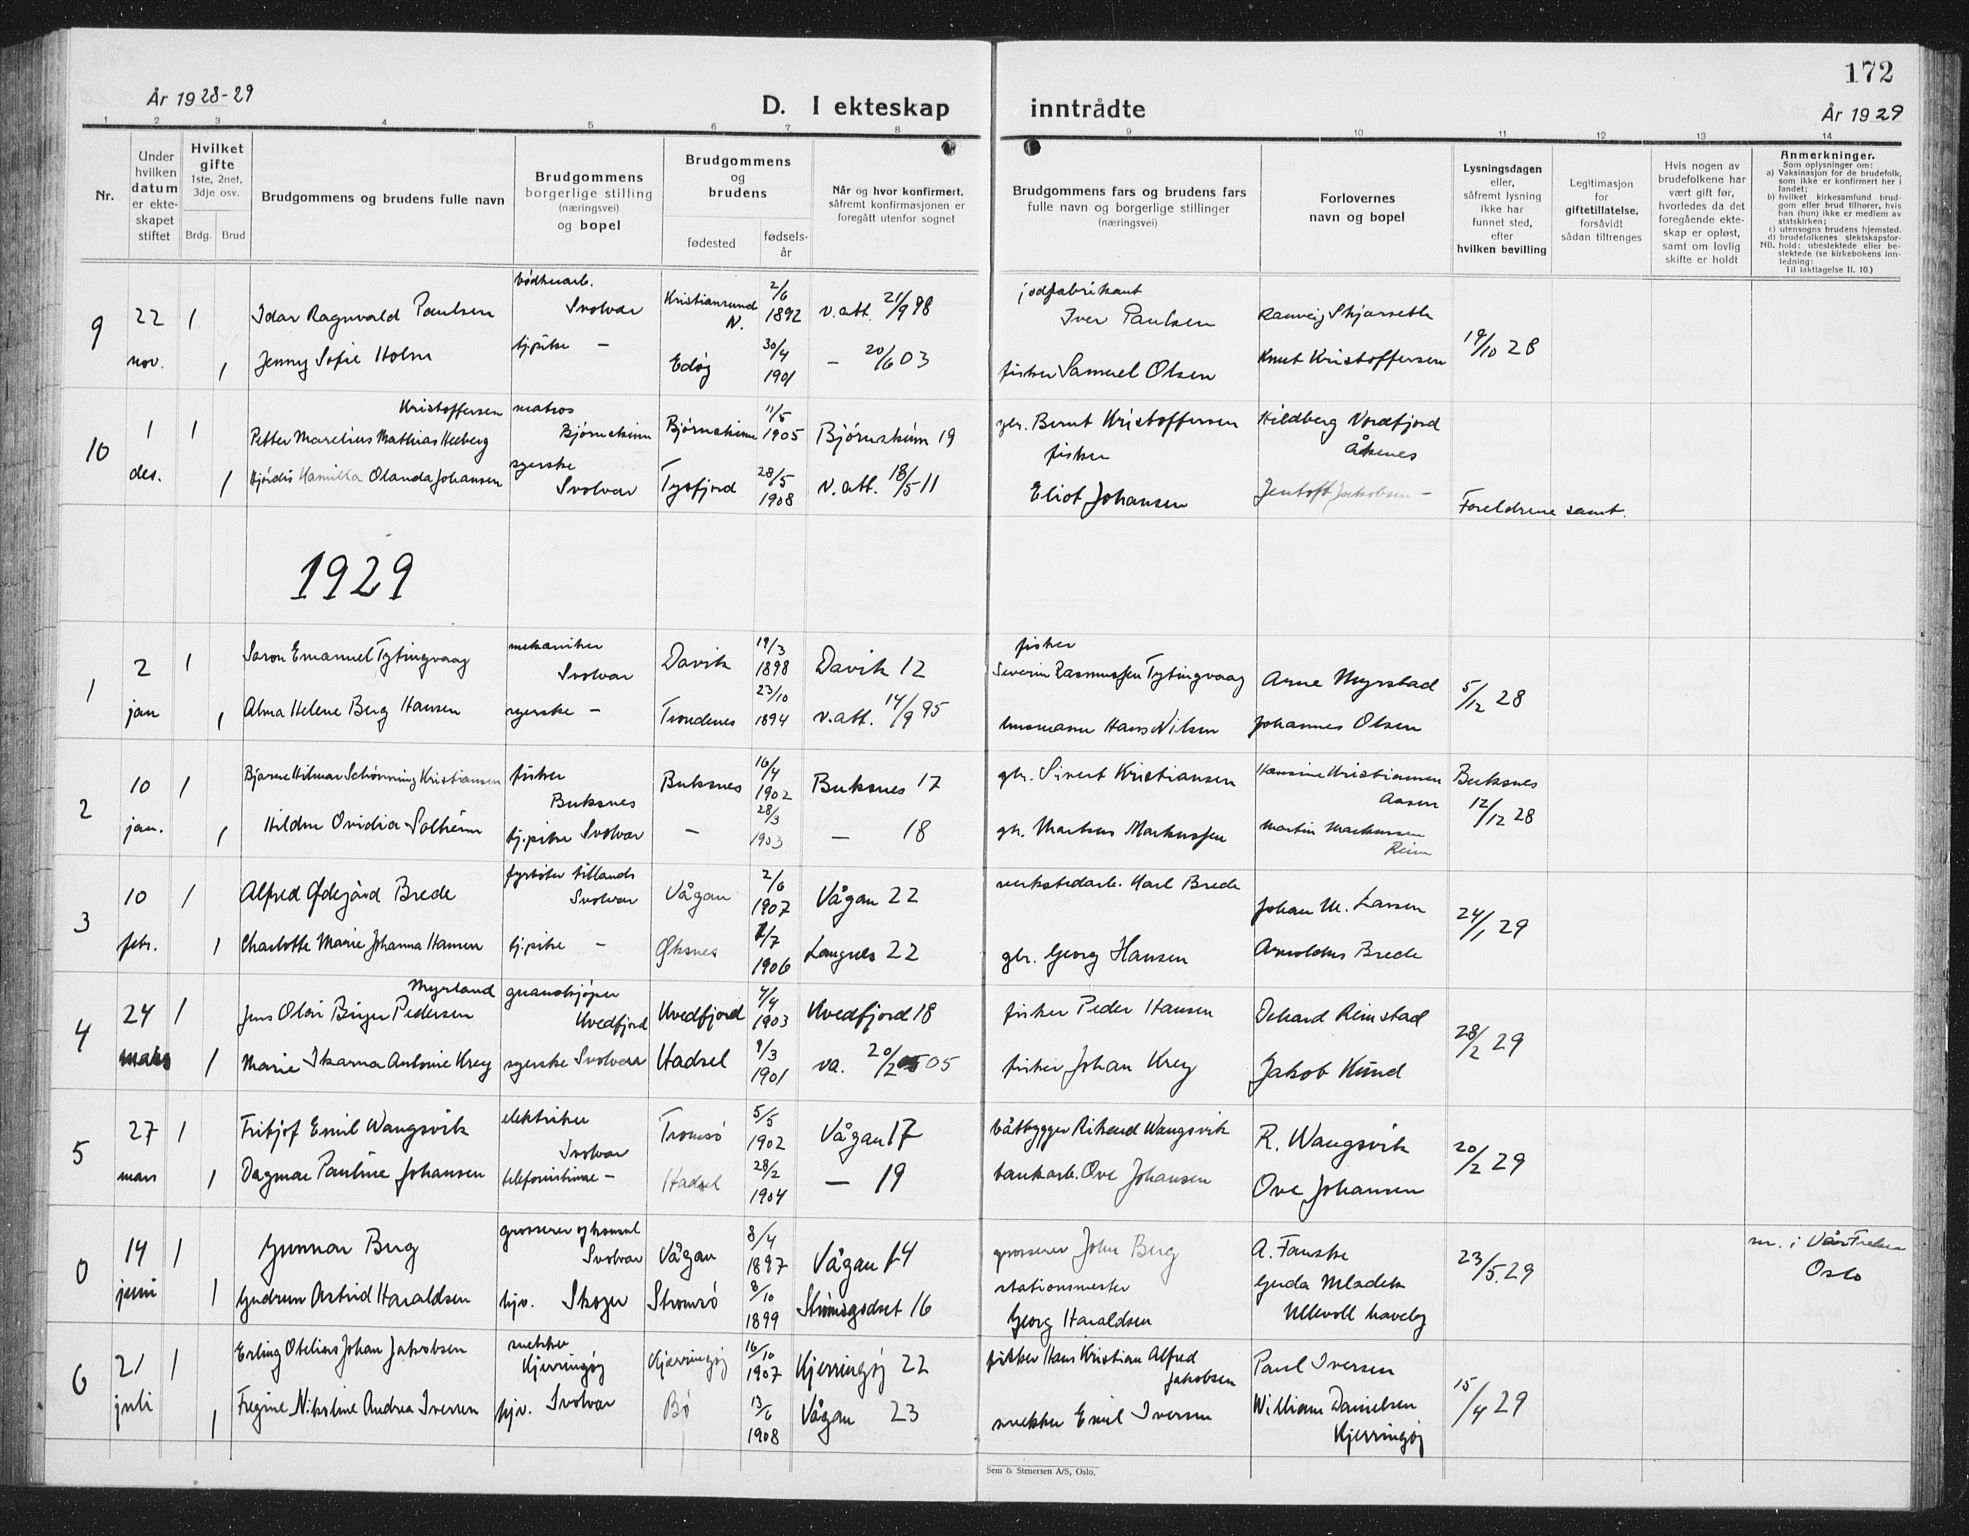 172
År 1928-29
D. I ekteskap
inntrådte
År 1929
1 2 3 4 5 6 7 8 9 10 11 12 13 14
Nr.
Under hvilken datum er ekte-skapet stiftet
Hvilket gifte
1ste, 2net, 3dje osv.
Brdg. Brud
Brudgommens og brudens fulle navn
Brudgommens borgerlige stilling (næringsvei) og bopel
Brudgommens og brudens
fødested
fødsels-år
Når og hvor konfirmert, såfremt konfirmasjonen er foregått utenfor sognet
Brudgommens fars og brudens fars fulle navn og borgerlige stillinger (næringsvei)
Forlovernes navn og bopel
Lysningsdagen eller, såfremt lysning ikke har funnet sted, efter hvilken bevilling
Legitimasjon for giftetillatelse, forsåvidt sådan tiltrenges
Hvis nogen av brudefolkene har vært gift før, hvorledes da det foregående ekte-skap er opløst, samt om lovlig skifte er holdt
Anmerkninger.
Som oplysninger om:
a) Vaksinasjon for de brudefolk, som ikke er konfirmert her i landet;
b) hvilket kirkesamfund brud-gom eller brud tilhører, hvis han (hun) ikke er medlem av statskirken;
c) utensogns brudens hjemsted.
d) brudefolkenes slektskapsfor-hold: ubeslektede eller be-slektede (se kirkebokens inn-ledning:
NB.
Til iakttagelse II. 10.)
9 22 nov. 1 Idar Ragnvald Paulsen Svolvær Kristiansund N. 2/6 1892 v.att. 21/9 98 Iver Paulsen Ranveig Skjærseth 19/10 28
1 Jenny Sofie Holm tj.pike - Edøy 30/4 1901 - 20/6 03 fisker Samuel Olsen Knut Kristoffersen
10 1 des. 1 Kristoffersen matros
Petter Marelius Mathias Heeberg Bjørnskinn Bjørnskinn 11/5 1905 Bjørnskinn 19 gbr. Bernt Kristoffersen Hildberg Nordfjord Åknes
1 Hjørdis Hamilla Olanda Johansen syerske Svolvær Tysfjord 28/5 1908 v.att. 18/5 11 fisker Eliot Johansen Jentoft Jakobsen - Foreldrene samt.
1929
1 2 jan 1 Saron Emanuel Tytingvaag mekaniker Svolvær Davik 19/3 1898 Davik 12 fisker Severin Rasmussen Tytingvaag Arne Myrstad 5/12 28
1 Alma Helene Berg Hansen syerske - Trondenes 23/10 1894 v.att. 14/9 95 husmann Hans Nilsen Johannes Olsen
2 10 jan. 1 Bjarne Hilmar Schønning Kristiansen fisker Buksnes Buksnes 16/4 1902 Buksnes 17 gbr. Sivert Kristiansen Hansine Kristiansen Aasen Buksnes 12/12 28
1 Hildur Ovidia Solheim tj.pike Svolvær - 28/3 1903 - 18 gbr. Markus Markussen Martin Markussen Reim
3 10 febr. 1 Alfred Ødegård Brede fyrbøter tillands Svolvær Vågan 2/6 1907 Vågan 22 verkstedarb. Karl Brede Johan M. Larsen 24/1 29
1 Charlotte Marie Johanna Hansen tj.pike - Øksnes /7 1906 Langnes 22 gbr. Georg Hansen Arnoldus Brede
4 24 mars 1 Myrland guanokjøper
Jens Olai Birger Pedersen Hvedfjord Hvedfjord 4/4 1903 Hvedfjord 18 fisker Peder Hansen Dehard Reinstad 28/2 29
1 Marie Ikarna Antonie Krey syerske Svolvær Hadsel 9/3 1901 va. 20/2 05 fisker Johan Krey Jakob Kund
5 27 mars 1 Fritjof Emil Wangsvik elektriker Svolvær Tromsø 5/5 1902 Vågan 17 båtbygger Rikard Wangsvik R. Wangsvik 20/2 29
1 Dagmar Pauline Johansen telefonistinne - Hadsel 28/2 1904 - 19 bankarb. Ove Johansen Ove Johansen
0 14 juni 1 Gunnar Berg grosserer og konsul Svolvær Vågan 8/4 1897 Vågan 14 grosserer John Berg A. Fauske 23/5. 29 m. i Vår Frelser Oslo
1 Gudrun Astrid Haraldsen hjv. Skoger Strømsø 8/10 1899 Strømsgodset 16 stationsmester Georg Haraldsen Gerda Mladek Ullevoll haveby
6 21 juli 1 Erling Otelius Johan Jakobsen snekker Kjerringøy Kjerringøy 16/10 1907 Kjerringøy 22 fisker Hans Kristian Alfred Jakobsen Paul Iversen 15/4 29
1 Fregine Nikoline Andrea Iversen hjv. Svolvær Bø 13/6 1908 Vågan 23 snekker Emil Iversen William Danielsen Kjerringøy
Sem & Stenersen A/S, Oslo.